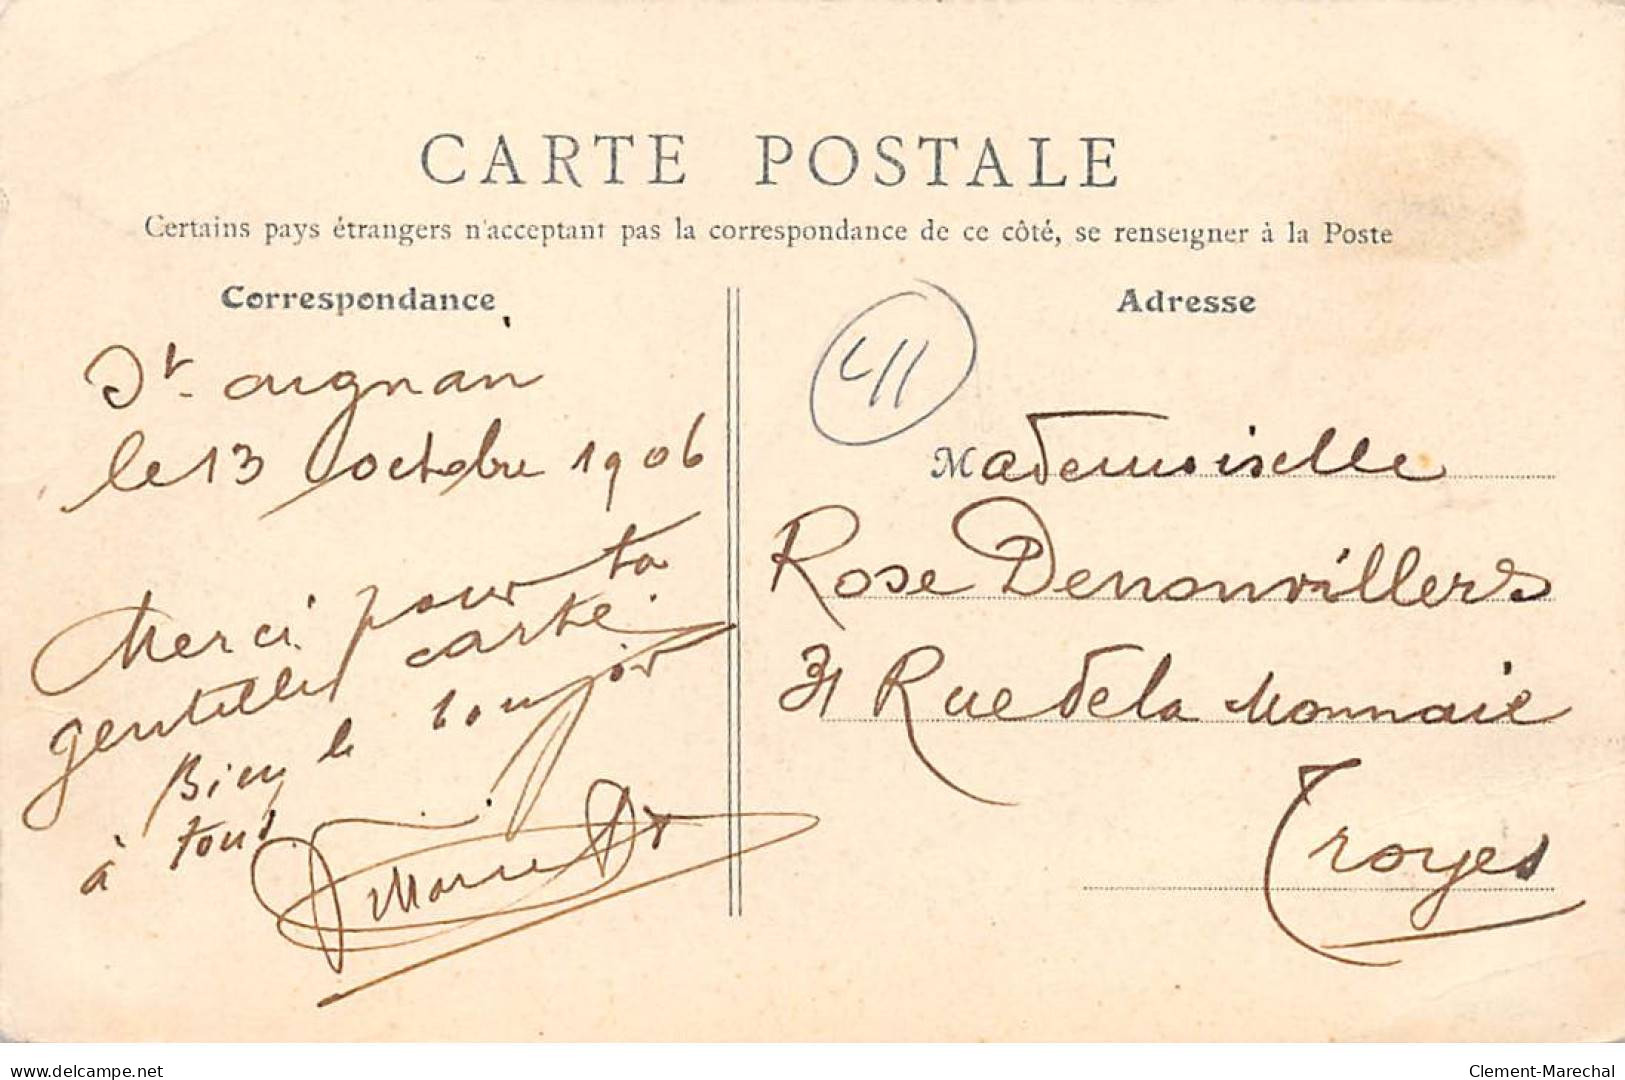 CARTE POSTALE
Certains pays étrangers n'acceptant pas la correspondance de ce côté, se renseigner à la Poste
Correspondance
St. aignan
le 13 octobre 1906
Merci pour ta
gentille carte.
Bien le bonjour
à tous
Marie
Adresse
41
Mademoiselle
Rose Denonvillers
31 Rue de la Monnaie
Troyes
www.delcampe.net
Clement-Marechal